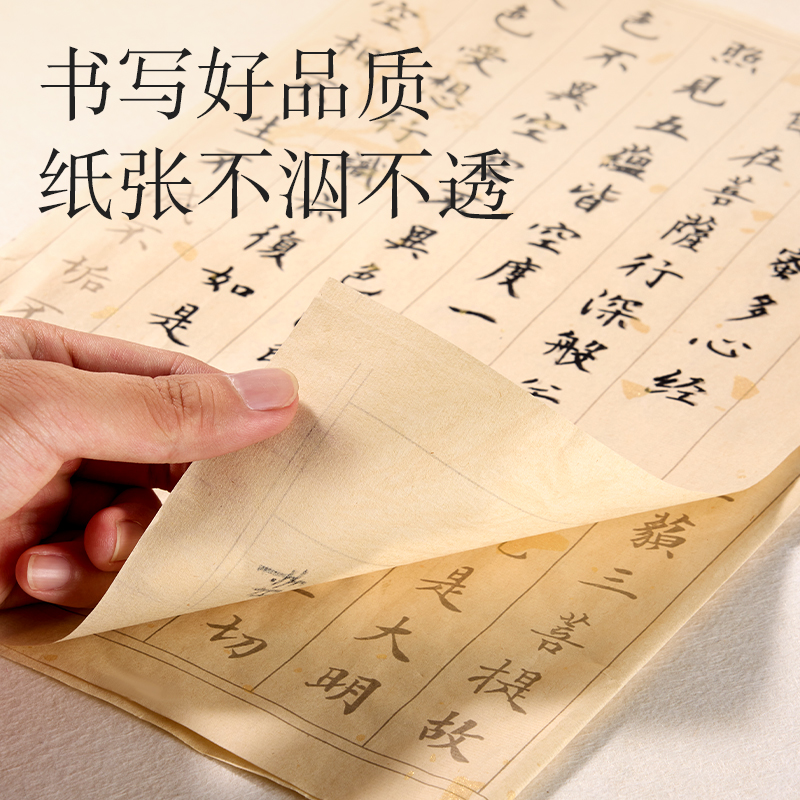 书写好品质
纸张不洇不透
蜜多心经
在菩薩行深般
照見五蘊皆空度一
色不異空
異色
色受想行識
復如是
空相
生不
不垢不
藐三菩提故
是大明
切